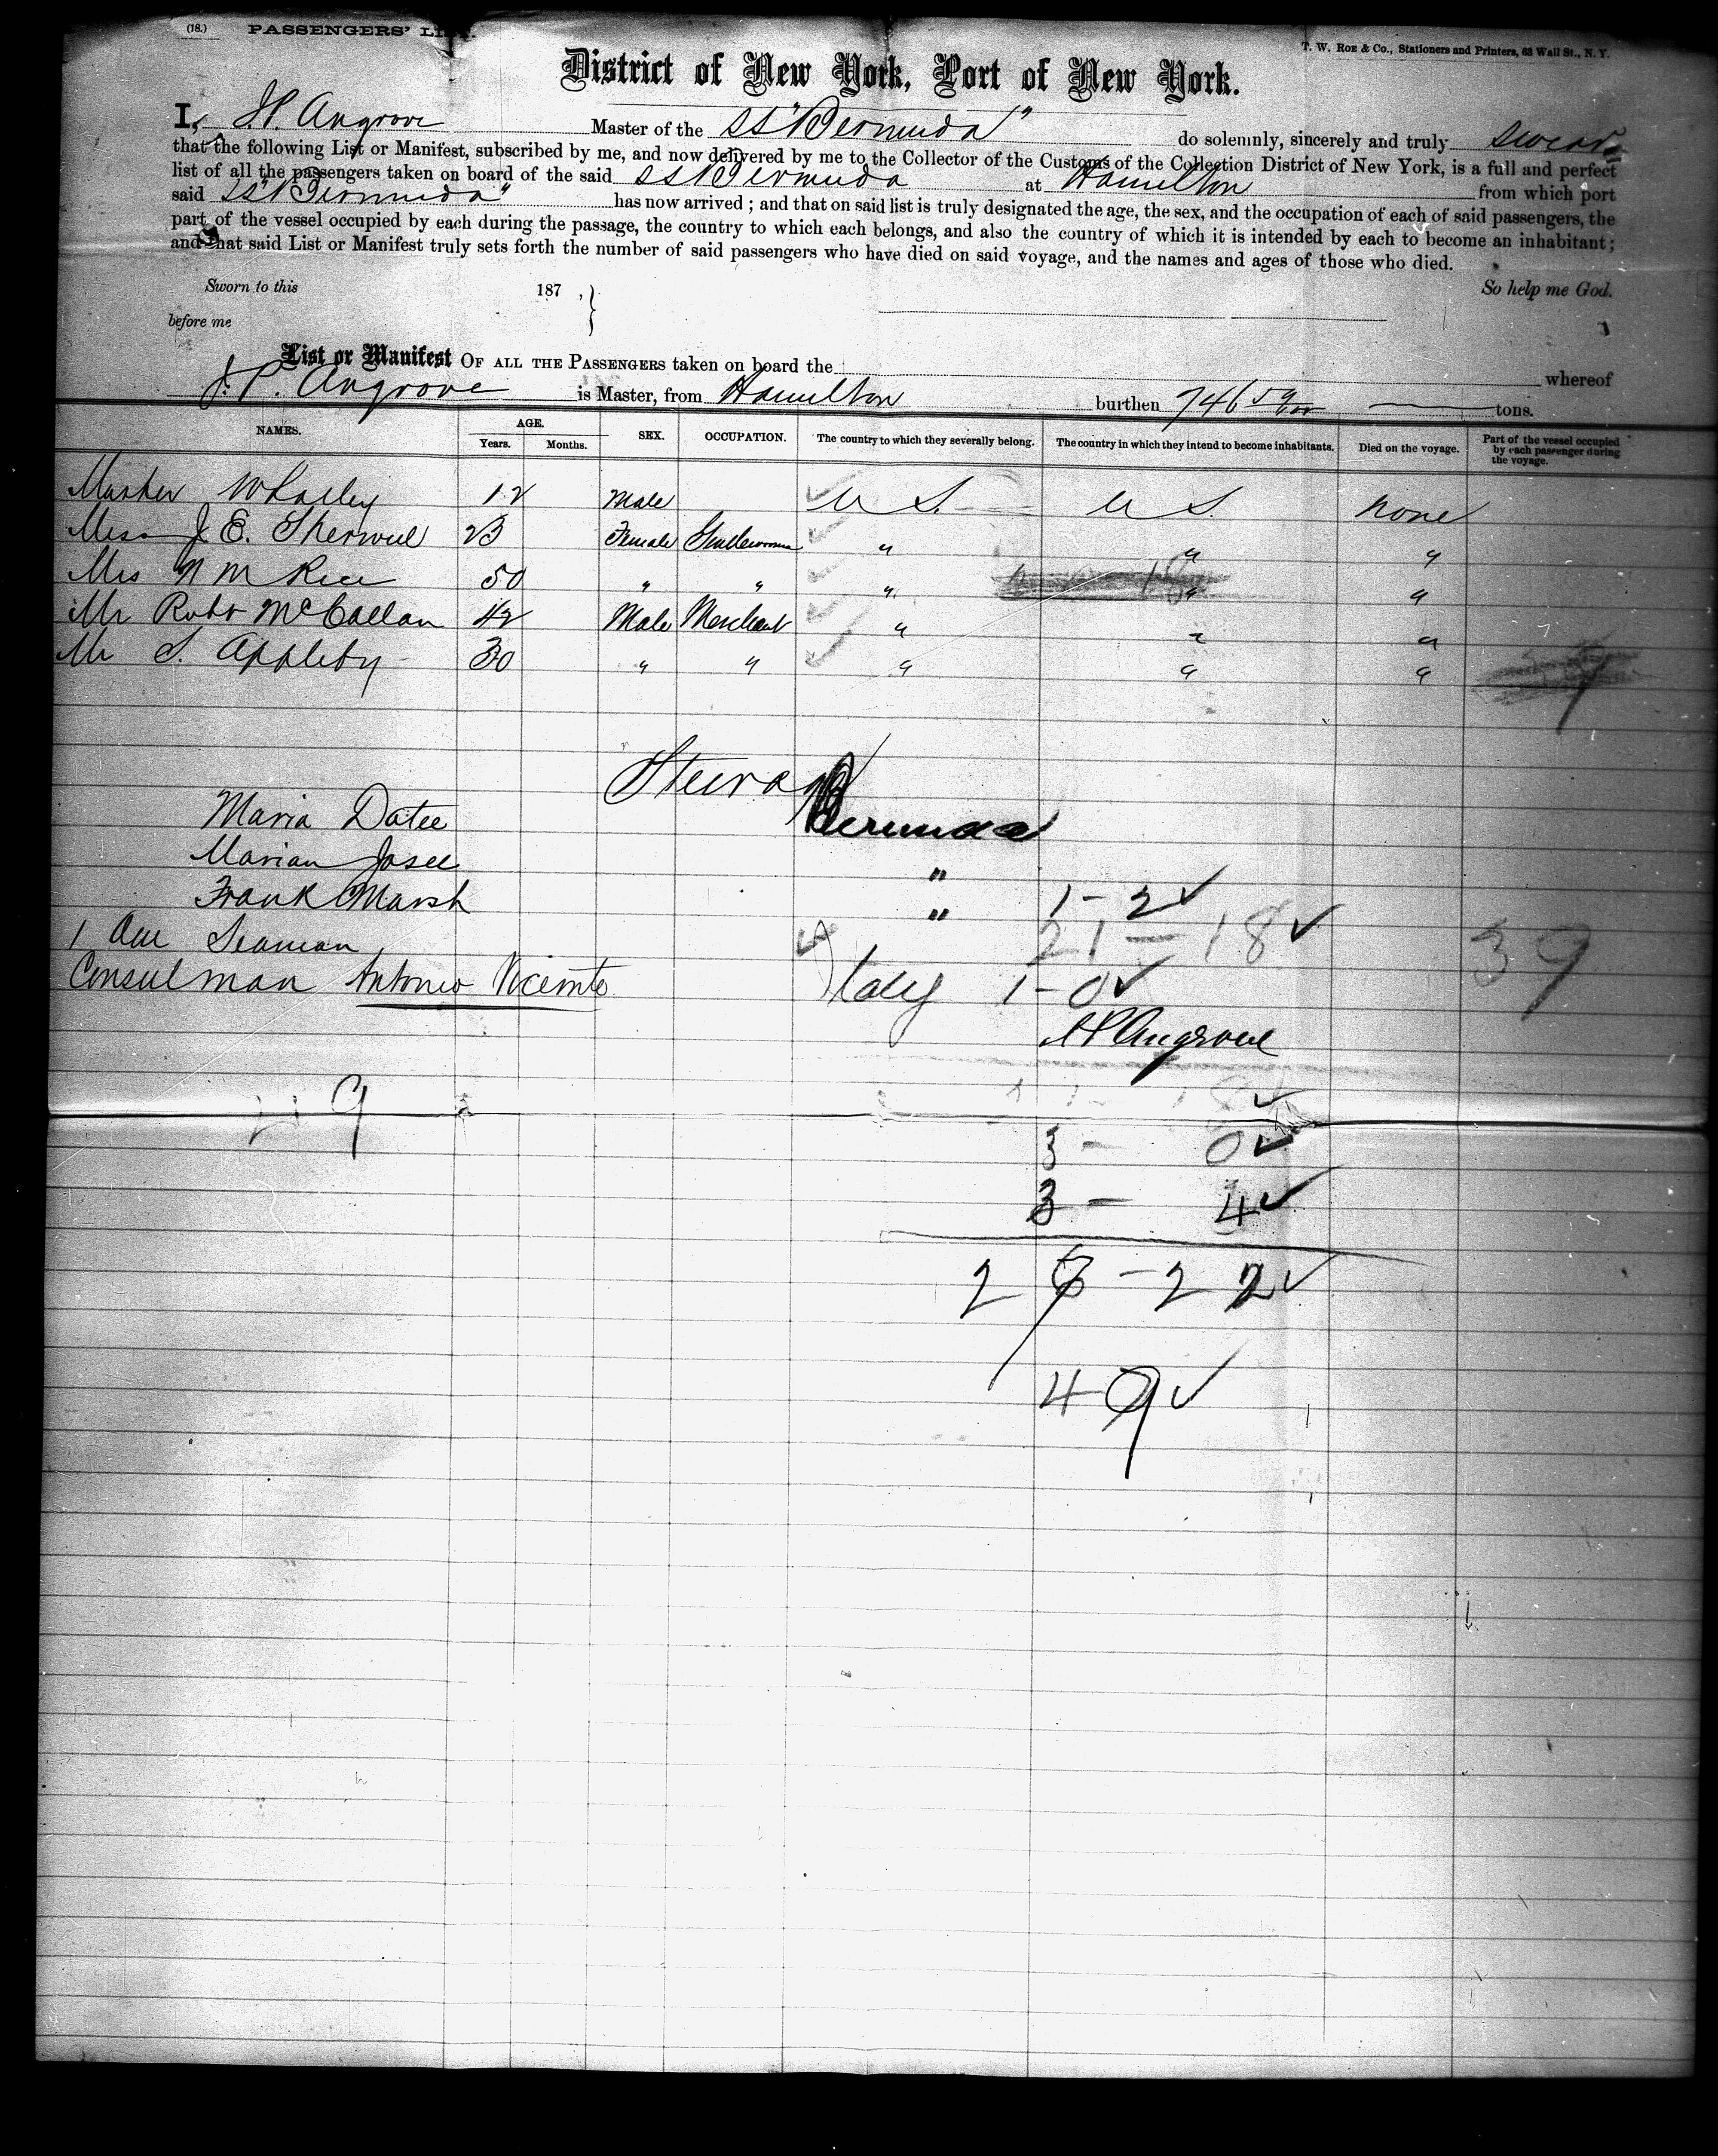 (18.) PASSENGERS' LIST.
T. W. ROE & CO., Stationers and Printers, 63 Wall St., N. Y.
District of New York, Port of New York.
I, J.P. Angrove Master of the SS "Bermuda" do solemnly, sincerely and truly swear
that the following List or Manifest, subscribed by me, and now delivered by me to the Collector of the Customs of the Collection District of New York, is a full and perfect
list of all the passengers taken on board of the said SS Bermuda at Hamilton from which port
said SS "Bermuda" has now arrived; and that on said list is truly designated the age, the sex, and the occupation of each of said passengers, the
part of the vessel occupied by each during the passage, the country to which each belongs, and also the country of which it is intended by each to become an inhabitant;
and that said List or Manifest truly sets forth the number of said passengers who have died on said voyage, and the names and ages of those who died.
Sworn to this 187 , } So help me God.
before me
List or Manifest OF ALL THE PASSENGERS taken on board the whereof
J. P. Angrove is Master, from Hamilton burthen 746 59/100 tons.
NAMES. AGE. Years. Months. SEX. OCCUPATION. The country to which they severally belong. The country in which they intend to become inhabitants. Died on the voyage. Part of the vessel occupied by each passenger during the voyage.
Master Whalley 12 Male U S. U S. none
J. E. 23 Female Gentlewoman " " "
Mrs N M Rice 50 " " " " "
Mr Robt McCallan 42 Male Merchant " " "
Mr S. Appleby 30 " " " " "
Bermuda
Maria Datee
Marian Josee "
Frank Marsh " 1 - 2 ✓
1 Seaman 21 = 18 ✓ 39
Consulman Antonio Vicente Italy 1 - 0 ✓
J P Angrove
9
3 - 0 ✓
3 - 4 ✓
2 - 2 2 ✓
4 9 ✓